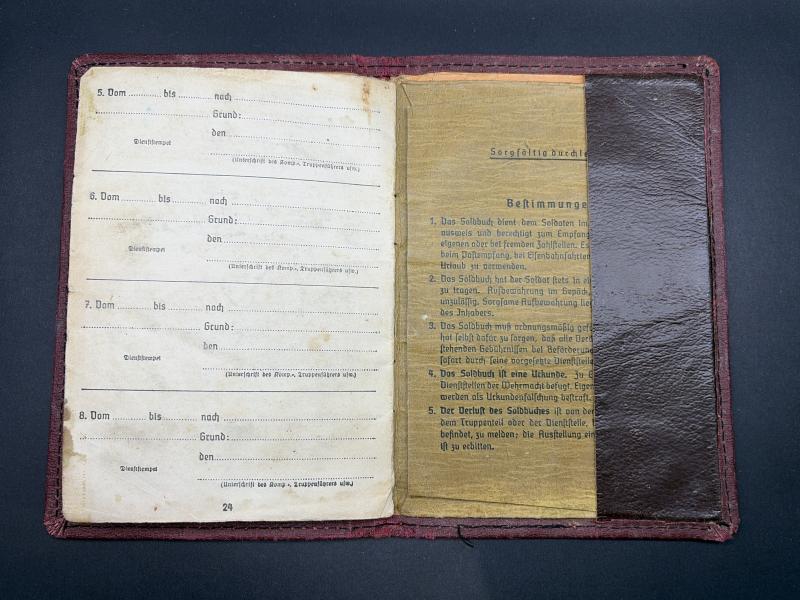 5. Vom ............ bis .......... nach
Grund:
den
Dienststempel
(Unterschrift des Komp.-, Truppenführers usw.)
6. Vom ............ bis .......... nach
Grund:
den
Dienststempel
(Unterschrift des Komp.-, Truppenführers usw.)
7. Vom ............ bis .......... nach
Grund:
den
Dienststempel
(Unterschrift des Komp.-, Truppenführers usw.)
8. Vom ............ bis .......... nach
Grund:
den
Dienststempel
(Unterschrift des Komp.-, Truppenführers usw.)
24
Sorgfältig durchle
Bestimmunge
1. Das Soldbuch dient dem Soldaten im
ausweis und berechtigt zum Empfan
eigenen oder bei fremden Zahlstellen. Es
beim Postempfang, bei Eisenbahnfahrten
Urlaub zu verwenden.
2. Das Soldbuch hat der Soldat stets in ei
zu tragen. Aufbewahrung im Gepäck
unzulässig. Sorgsame Aufbewahrung lie
des Inhabers.
3. Das Soldbuch muß ordnungsmäßig gef
hat selbst dafür zu sorgen, daß alle Ver
stehenden Gebührnissen bei Beförderun
sofort durch seine vorgesetzte Dienststel
4. Das Soldbuch ist eine Urkunde. Zu E
Dienststellen der Wehrmacht befugt. Eigen
werden als Urkundenfälschung bestraft.
5. Der Verlust des Soldbuches ist von der
dem Truppenteil oder der Dienststelle,
befindet, zu melden; die Ausstellung ein
ist zu erbitten.